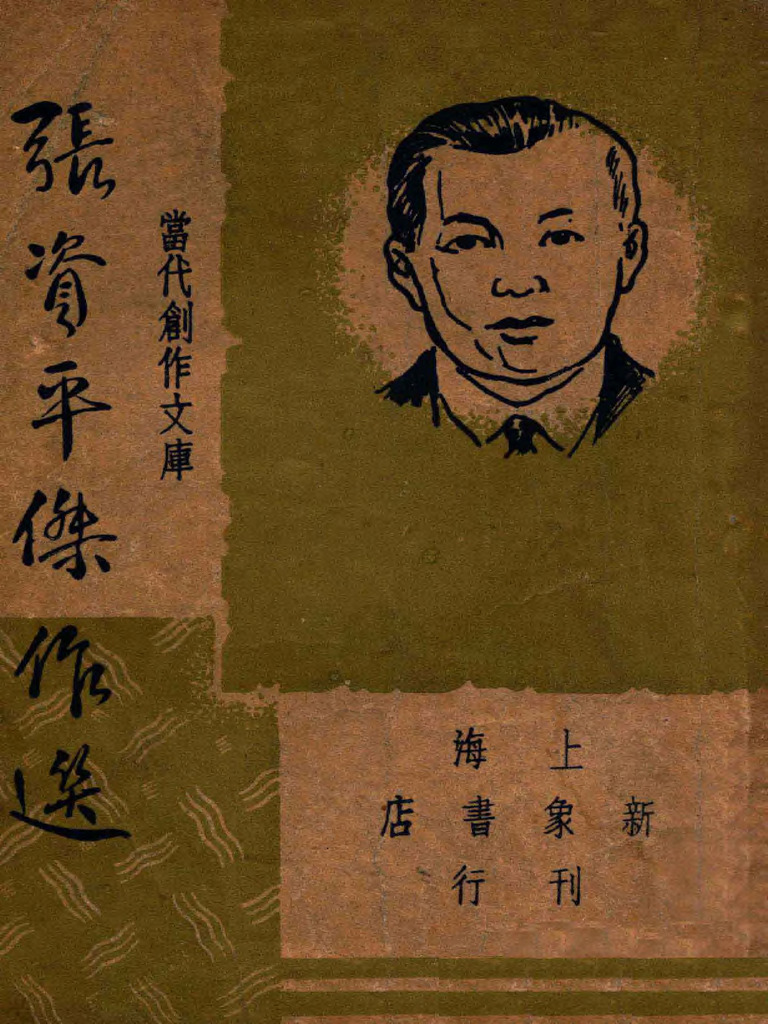 張資平傑作選
當代創作文庫
上海
新象書店
刊行